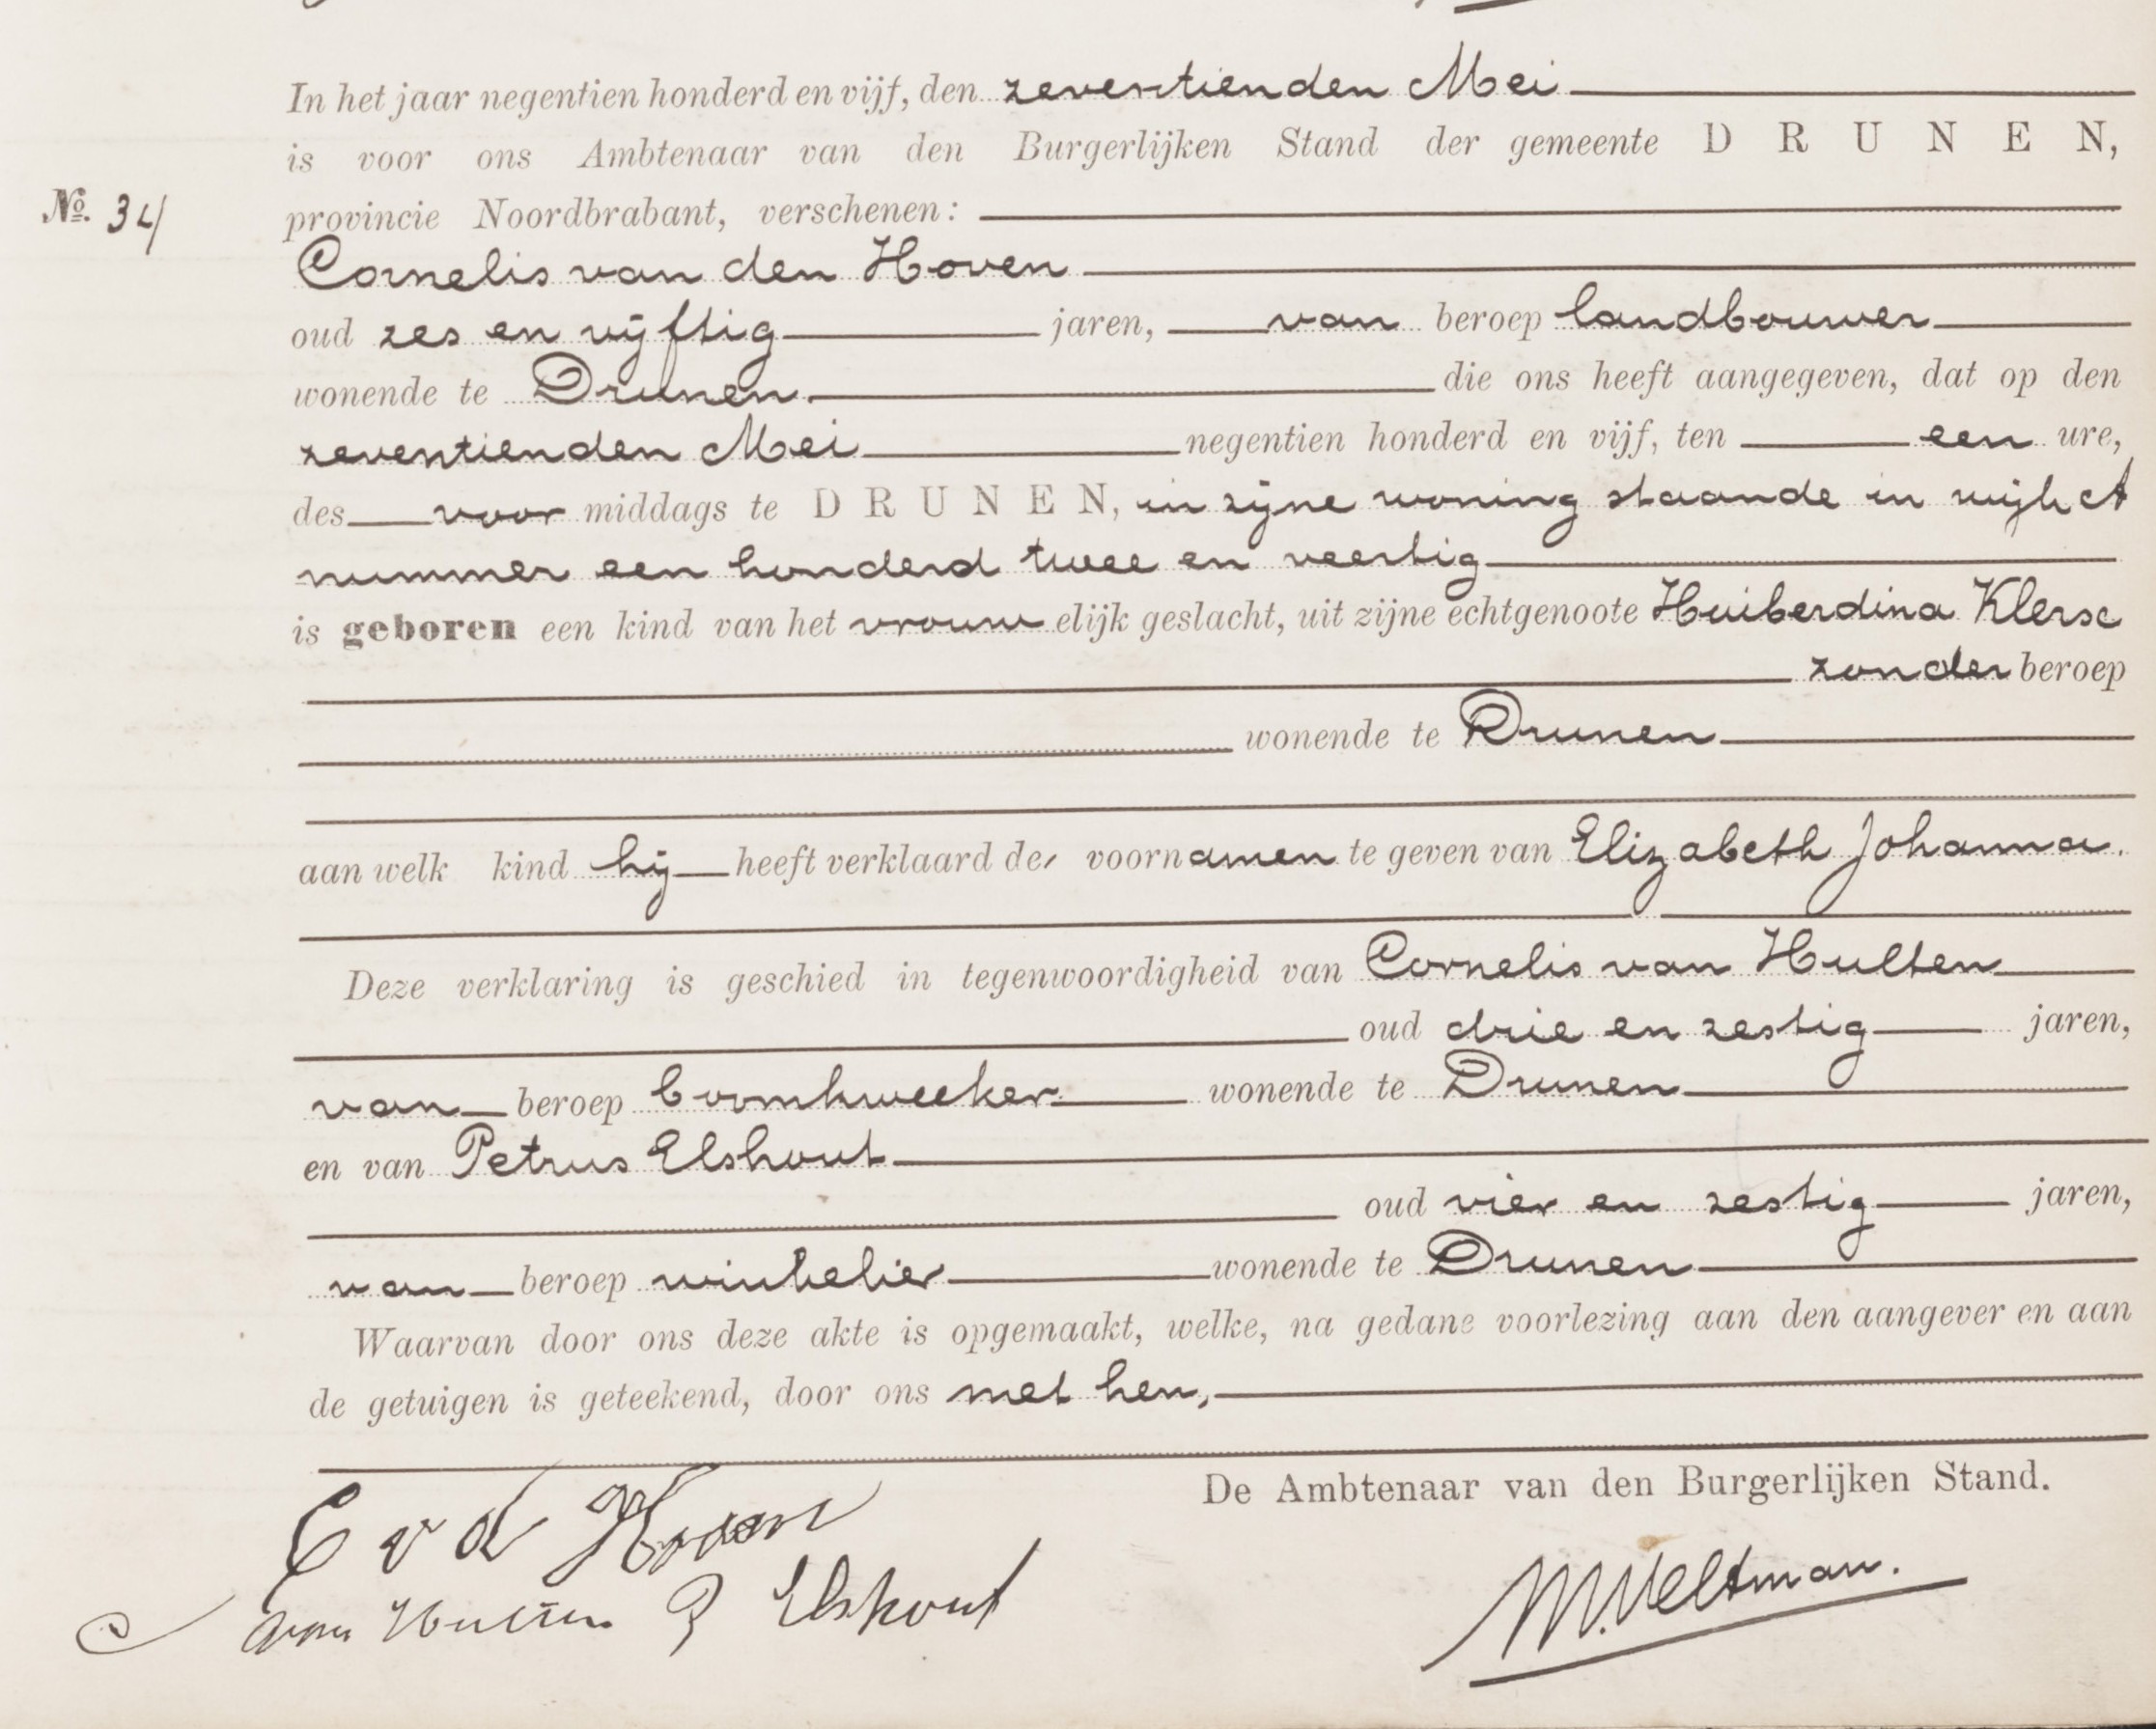 In het jaar negentien honderd en vijf, den zeventienden Mei
is voor ons Ambtenaar van den Burgerlijken Stand der gemeente DRUNEN,
No. 34
provincie Noordbrabant, verschenen:
Cornelis van den Hoven
oud zes en vijftig jaren, van beroep landbouwer
wonende te Drunen die ons heeft aangegeven, dat op den
zeventienden Mei negentien honderd en vijf, ten een ure,
des voor middags te DRUNEN, in zijne woning staande in wijk A
nummer een honderd twee en veertig
is geboren een kind van het vrouwelijk geslacht, uit zijne echtgenoote Huiberdina Klerse
zonder beroep
wonende te Drunen
aan welk kind hij heeft verklaard de voornamen te geven van Elizabeth Johanna.
Deze verklaring is geschied in tegenwoordigheid van Cornelis van Hulten
oud drie en zestig jaren,
van beroep boomkweeker wonende te Drunen
en van Petrus Elshout
oud vier en zestig jaren,
van beroep winkelier wonende te Drunen
Waarvan door ons deze akte is opgemaakt, welke, na gedane voorlezing aan den aangever en aan
de getuigen is geteekend, door ons met hen,
De Ambtenaar van den Burgerlijken Stand.
C v d Hoven
C van Hulten P Elshout
M. Veltman.